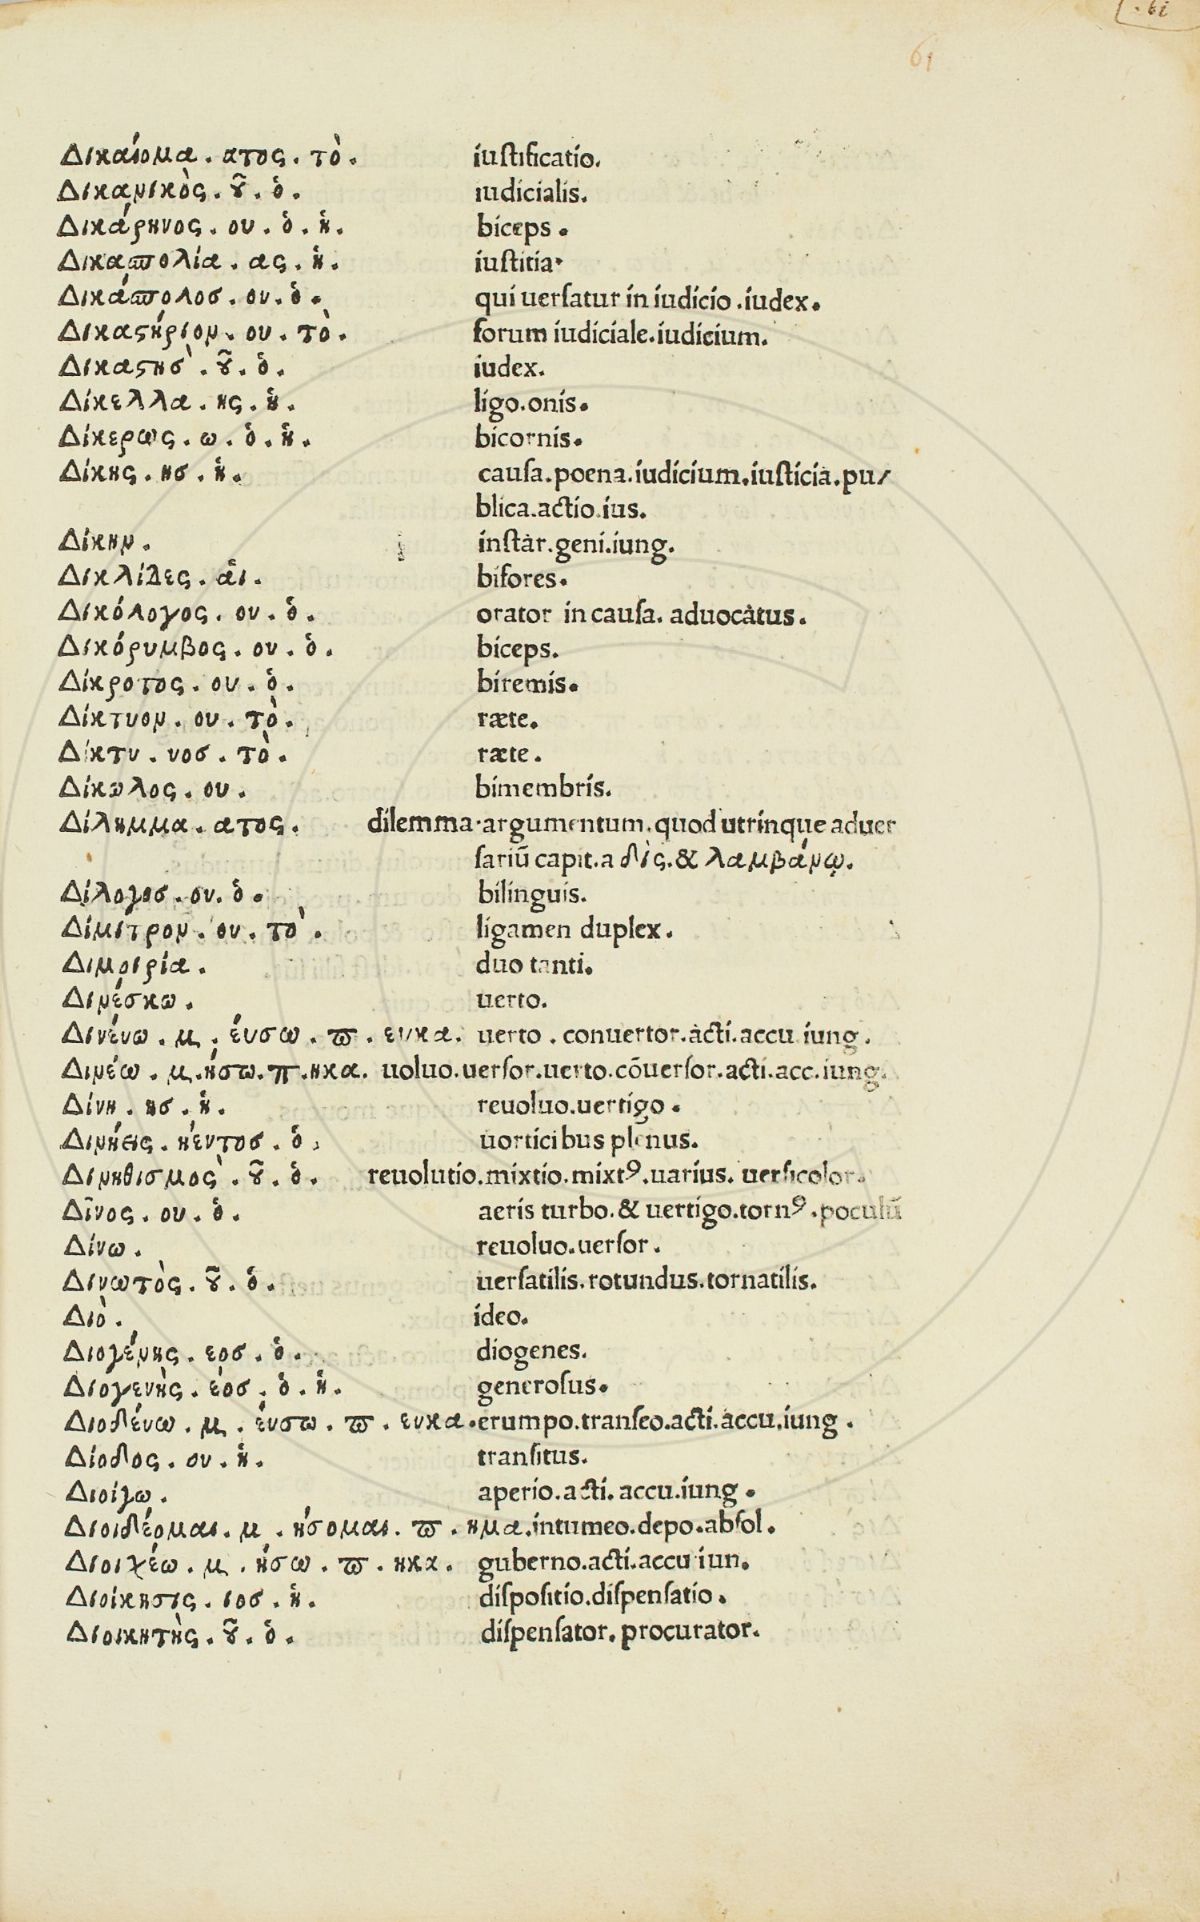 .61
61
Δικαίομα. ατος. τὸ. iustificatio.
Δικανικὸς. ȣ͂. ὁ. iudicialis.
Δικάρηνος. ου. ὁ. ἡ. biceps.
Δικαπολία. ας. ἡ. iustitia.
Δικάπολοσ. ου. ὁ. qui uersatur in iudicio.iudex.
Δικαϛήριον. ου. τὸ. forum iudiciale.iudicium.
Δικαϛησ̀. ȣ͂. ὁ. iudex.
Δίκελλα. ης. ἡ. ligo.onis.
Δίκερως. ω. ὁ. ἡ. bicornis.
Δίκης. ησ. ἡ. causa.poena.iudicium.iusticia.pu/
blica.actio.ius.
Δίκην. instar.geni.iung.
Δικλίδες. ἁι. bifores.
Δικόλογος. ου. ὁ. orator in causa. aduocatus.
Δικόρυμβος. ου. ὁ. biceps.
Δίκροτος. ου. ὁ. biremis.
Δίκτυον. ου. τὸ. ræte.
Δίκτυ. υοσ. τὸ. ræte.
Δίκωλος. ου. bimembris.
Δίλημμα. ατος. dilemma.argumentum.quod utrinque aduer
sariū capit.a δὶς.& λαμβάνω.
Δίλογοσ. ου. ὁ. bilinguis.
Δίμιτρον. ου. τὸ. ligamen duplex.
Διμοιρία. duo tanti.
Δινέσκω. uerto.
Δινέυω. μ. έυσω. ϖ. ευκα. uerto. conuertor.acti.accu.iung.
Δινέω. μ.ήσω.π.ηκα. uoluo.uersor.uerto.cōuersor.acti.acc.iung.
Δίνη. ησ. ἡ. reuoluo.uertigo.
Δινήεις. ήεντοσ. ὁ. uorticibus plenus.
Δινηθισμος̀. ȣ͂. ὁ. reuolutio.mixtio.mixtꝰ.uarius. uersicolor.
Δῖνος. ου. ὁ. aeris turbo.& uertigo.tornꝰ.poculū
Δίνω. reuoluo.uersor.
Δινωτὸς. ȣ͂. ὁ. uersatilis.rotundus.tornatilis.
Διὸ. ideo.
Διογένης. εοσ. ὁ. diogenes.
Διογενὴς. έοσ. ὁ. ἡ. generosus.
Διοδέυω. μ. έυσω. ϖ. ευκα. erumpo.transeo.acti.accu.iung.
Δίοδος. ου. ἡ. transitus.
Διοίγω. aperio.acti.accu.iung.
Διοιδέομαι. μ. ήσομαι. ϖ. ημα.intumeo.depo.absol.
Διοικέω. μ. ήσω. ϖ. ηκα. guberno.acti.accu iun.
Διοίκησις. ιοσ. ἡ. dispositio.dispensatio.
Διοικητὴς. ȣ͂. ὁ. dispensator.procurator.